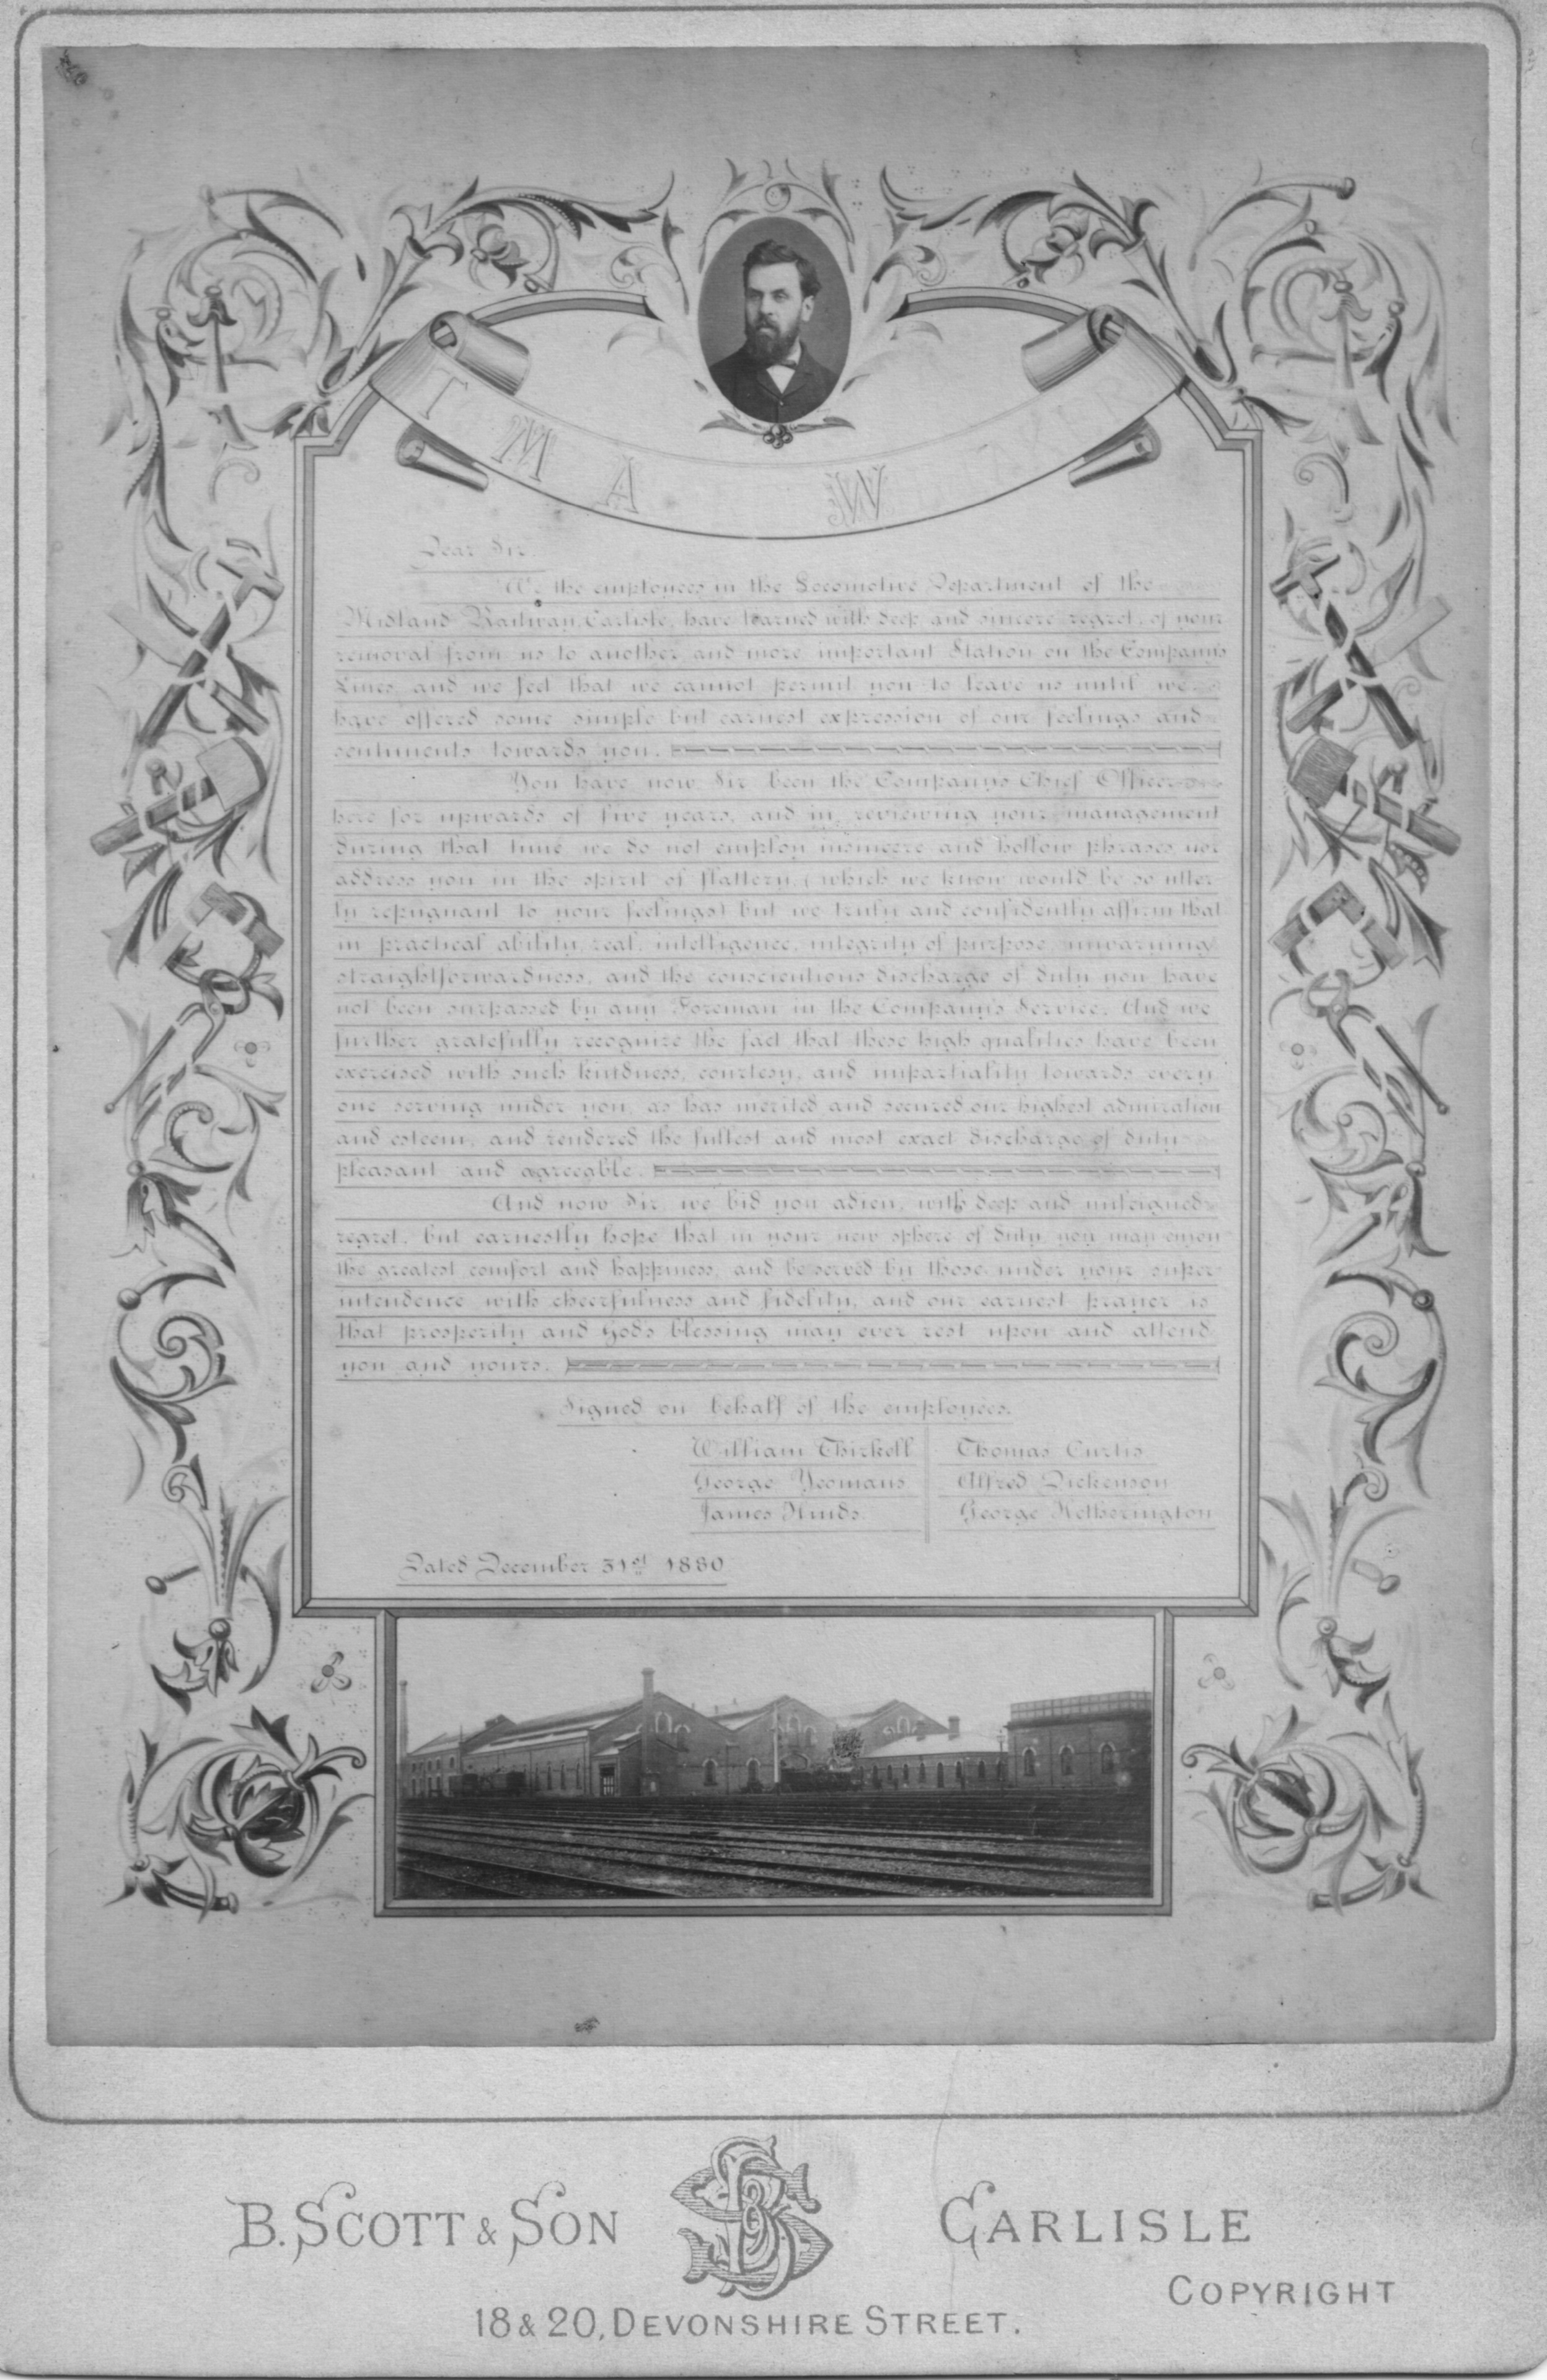 T M A W
Dear Sir
We the employees in the Locomotive Department of the
Midland Railway, Carlisle, have learned with deep and sincere regret, of your
removal from us to another and more important Station on the Company's
Lines, and we feel that we cannot permit you to leave us until we
have offered some simple but earnest expression of our feelings and
sentiments towards you.
You have now Sir been the Company's Chief Officer
here for upwards of five years, and in reviewing your management
during that time we do not employ insincere and hollow phrases nor
address you in the spirit of flattery, (which we know would be so utter-
ly repugnant to your feelings) but we truly and confidently affirm that
in practical ability, zeal, intelligence, integrity of purpose,
straightforwardness, and the conscientious discharge of duty you have
not been surpassed by any Foreman in the Company's Service. And we
further gratefully recognize the fact that these high qualities have been
exercised with such kindness, courtesy, and impartiality towards every
one serving under you, as has merited and secured our highest admiration
and esteem, and rendered the fullest and most exact discharge of duty
pleasant and agreeable.
And now Sir, we bid you adieu, with deep and unfeigned
regret, but earnestly hope that in your new sphere of duty, you may enjoy
the greatest comfort and happiness, and be served by those under your super-
intendence with cheerfulness and fidelity, and our earnest prayer is
that prosperity and God's blessing may ever rest upon and attend
you and yours.
Signed on behalf of the employees.
William Thirkell Thomas Curtis
George Yeomans Alfred Dickenson
James Hinds. George Hetherington
Dated December 31st 1880
B. SCOTT & SON BS CARLISLE
COPYRIGHT
18 & 20, DEVONSHIRE STREET.